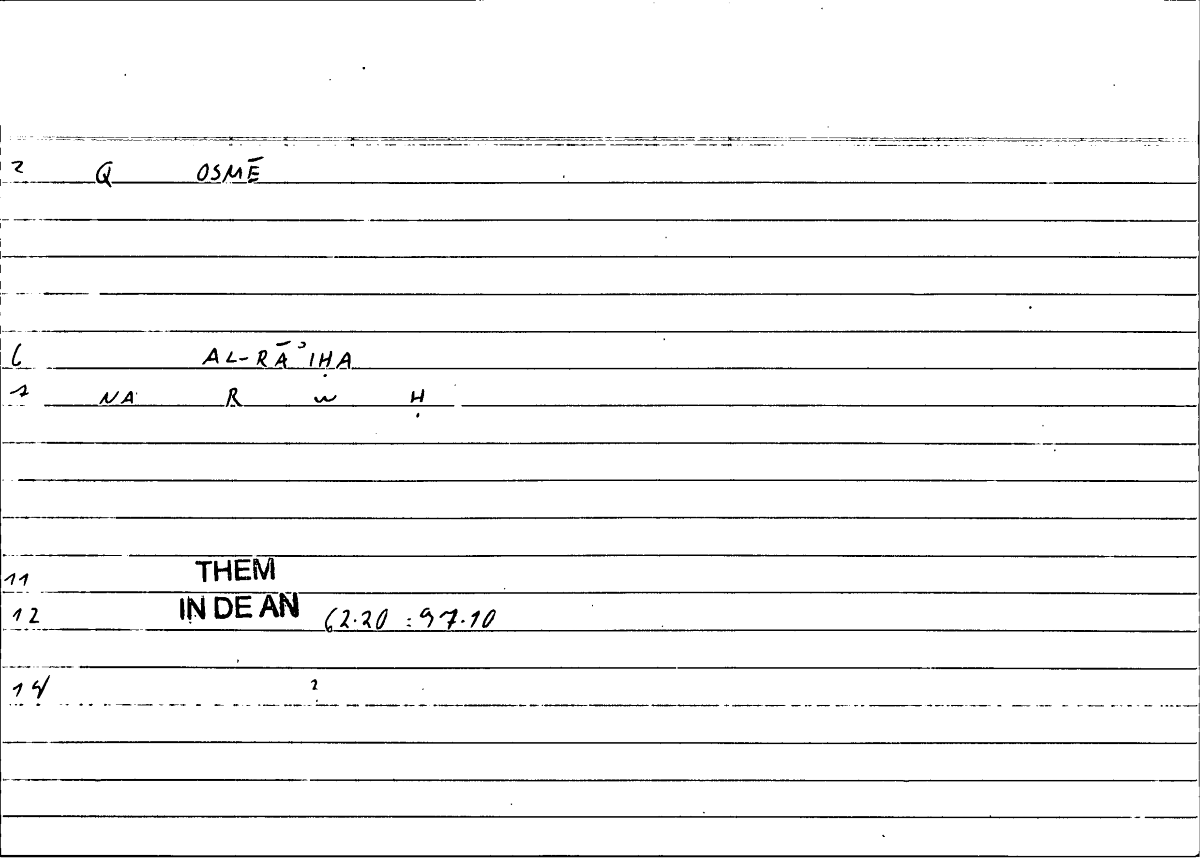 2 Q OSMĒ
6 AL-RĀʾIḤA
7 NA R W Ḥ
11 THEM
12 IN DE AN 62.20 : 97.10
14 2